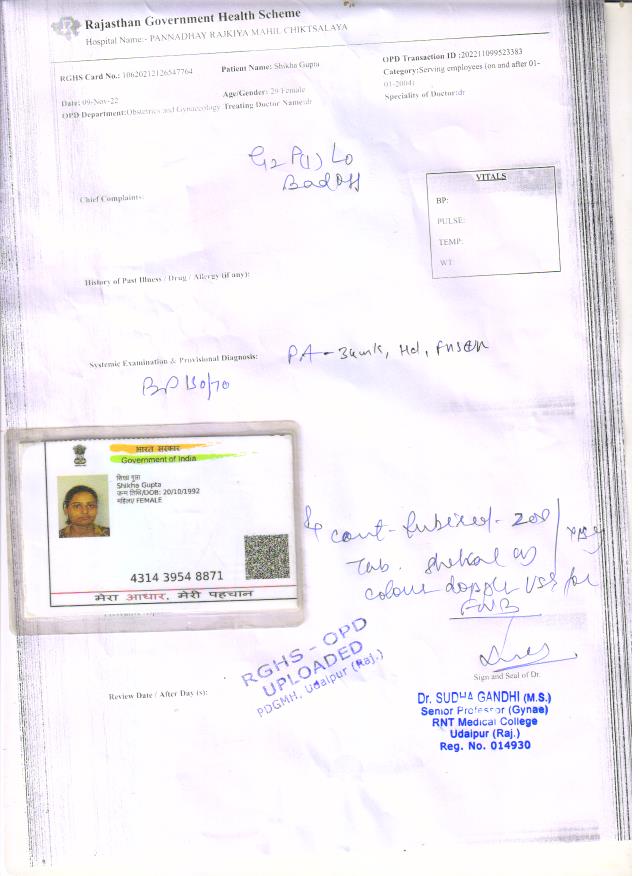 Rajasthan Government Health Scheme
Hospital Name:- PANNADHAY RAJKIYA MAHIL CHIKTSALAYA
RGHS Card No.: 10620212126547764
Patient Name: Shikha Gupta
OPD Transaction ID :202211099523383
Category:Serving employees (on and after 01-01-2004)
Date: 09-Nov-22
Age/Gender: 29 Female
Speciality of Doctor:dr
OPD Department:Obstetrics and Gynaecology
Treating Doctor Name:dr
G2 P(1) L0
Bad OH
Chief Complaints:
VITALS
BP:
PULSE:
TEMP:
WT:
History of Past Illness / Drug / Allergy (if any):
Systemic Examination & Provisional Diagnosis:
PA -
BP
भारत सरकार
Government of India
शिखा गुप्ता
Shikha Gupta
जन्म तिथि/DOB: 20/10/1992
महिला/ FEMALE
4314 3954 8871
मेरा आधार, मेरी पहचान
cont -
Tab. Shelcal
colour doppler USG for
FWB
RGHS - OPD
UPLOADED
PDGMH, Udaipur (Raj.)
Sign and Seal of Dr.
Review Date / After Day (s):
Dr. SUDHA GANDHI (M.S.)
Senior Professor (Gynae)
RNT Medical College
Udaipur (Raj.)
Reg. No. 014930